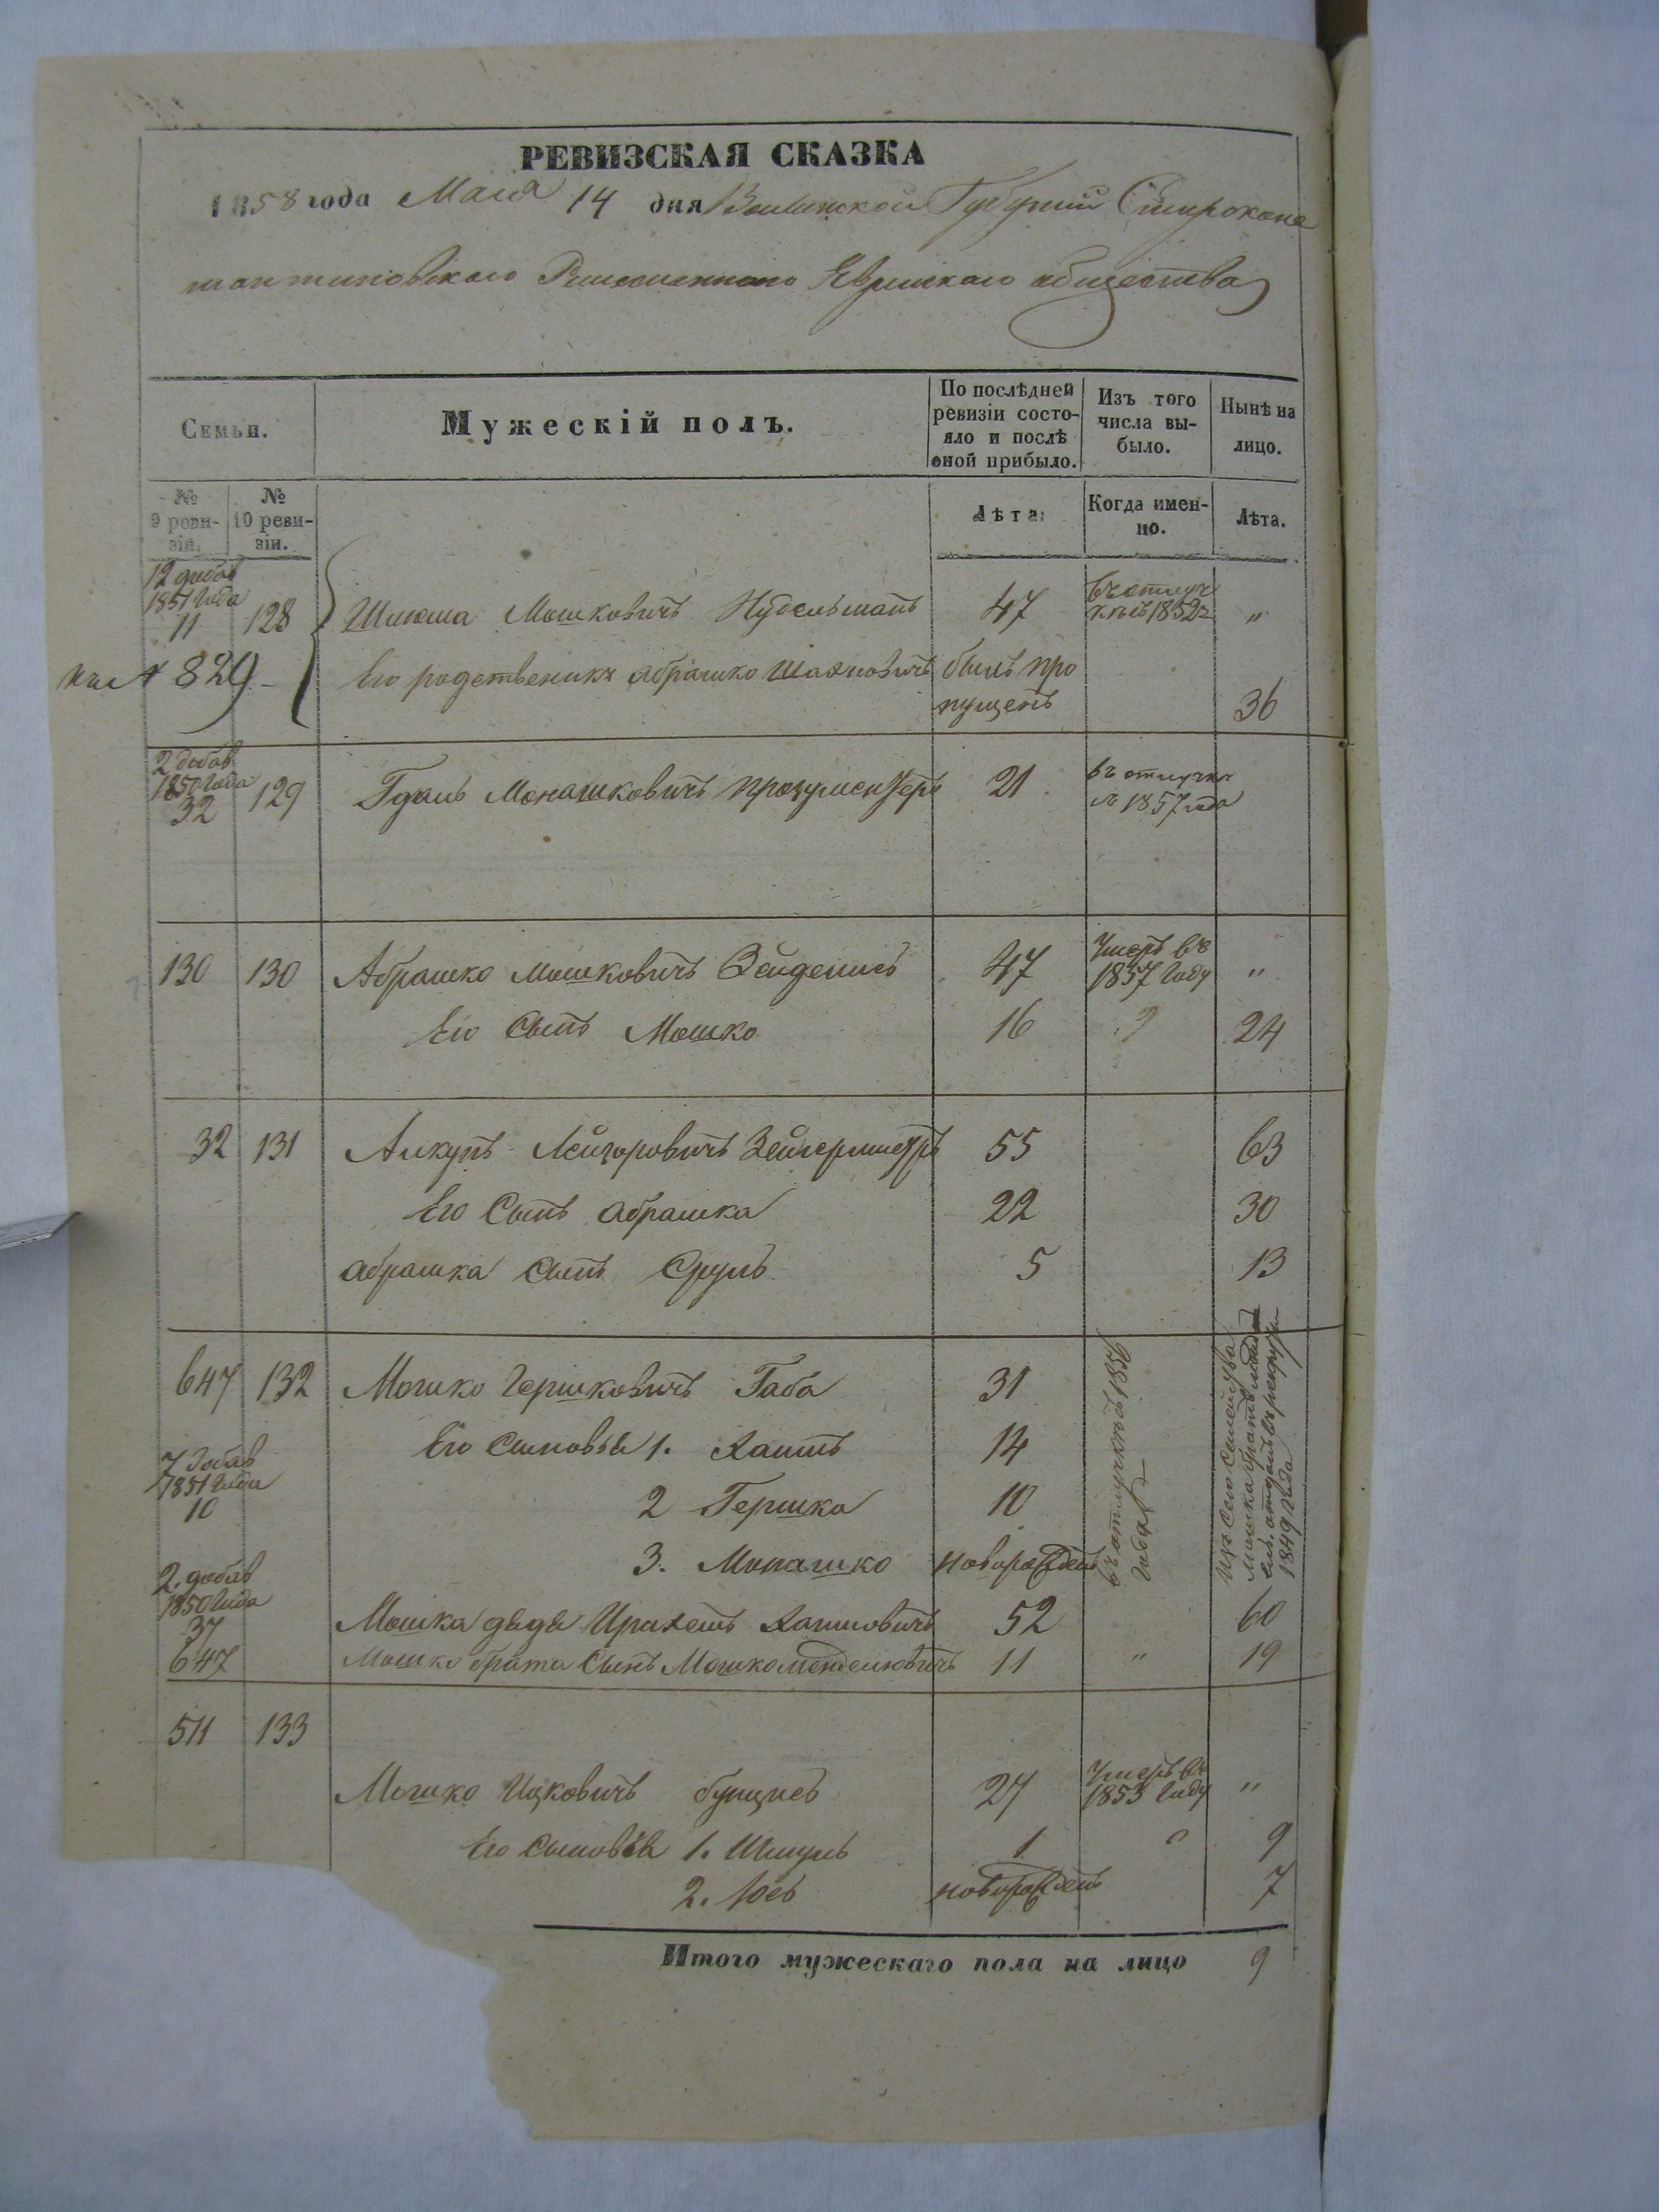 РЕВИЗСКАЯ СКАЗКА
1858 года Мая 14 дня Волынской Губернии Старокон
стантиновскаго Ремесленнаго Еврейскаго общества
Семьи.
Мужескій полъ.
По послѣдней ревизіи состо-
яло и послѣ оной прибыло.
Изъ того числа вы-
было.
Нынѣ на лицо.
№ 9 реви-
зіи.
№ 10 реви-
зіи.
Лѣта.
Когда имен-
но.
Лѣта.
12 добав
1851 Года
11 128 Мошковичъ Нудельманъ 47 въ отлуч
кѣ съ 1852 г "
829 Его родственикъ абрашко Шаяновичъ былъ про
пущенъ 36
2 добав
1850 Года
32 129 Гдаль Монашковичъ прозументеръ 21 въ отлучки
съ 1857 года
130 130 Абрашко Мошковичъ 47 Умеръ въ
1857 Году "
Его Сынъ Мошко 16 " 24
32 131 Янкуль Лейзоровичъ Зейгермистръ 55 63
Его Сынъ абрашка 22 30
абрашка Сынъ Сруль 5 13
647 132 Мошко Гершковичъ Габа 31
въ отлучкѣ съ 1856
года
Изъ Сего Семейства
Мошка братъ
отданъ въ рекруты
1849 Года
7 добав
1851 Года
10
Его Сыновья 1. Хаимъ 14
2 Гершко 10
3. Монашко новорожденъ
2. добав
1850 Года
37
Мошка дядя Хаимовичъ 52 60
647 Мошко брата Сынъ Мошко Менделювичъ 11 " 19
511 133
Мошко Ицковичъ 27 Умеръ въ
1853 Году "
Его Сыновья 1. Шмуль 1 " 9
2. Іось новорожденъ 7
Итого мужескаго пола на лицо 9